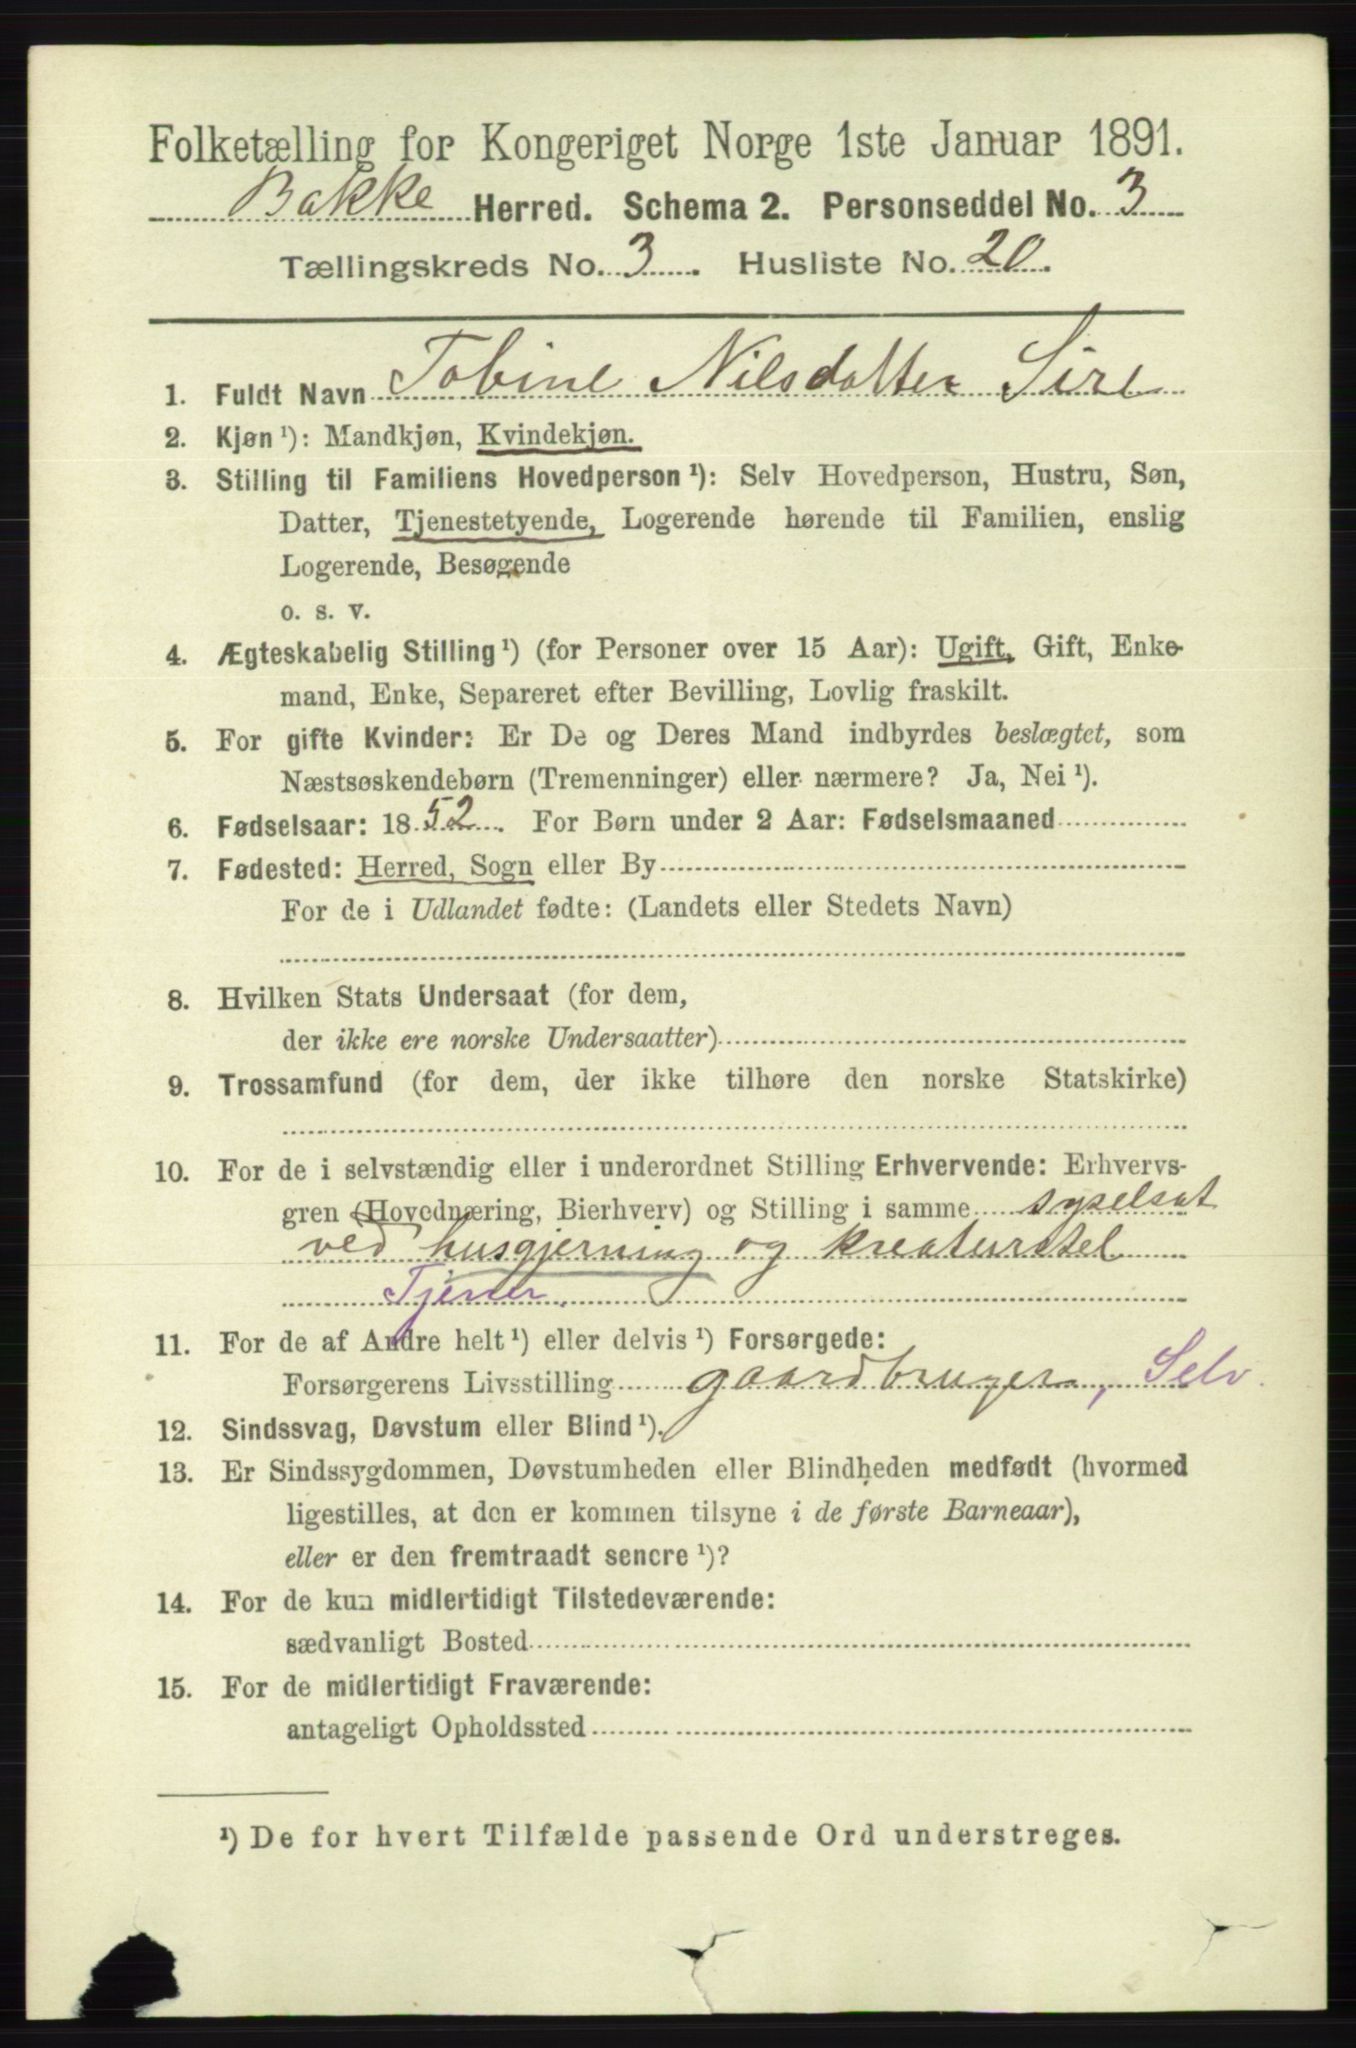 Folketælling for Kongeriget Norge 1ste Januar 1891.
Bakke Herred. Schema 2. Personseddel No. 3
Tællingskreds No. 3. Husliste No. 20.
1. Fuldt Navn Tobine Nilsdatter Sire
2. Kjøn ¹): Mandkjøn, Kvindekjøn.
3. Stilling til Familiens Hovedperson ¹): Selv Hovedperson, Hustru, Søn,
Datter, Tjenestetyende, Logerende hørende til Familien, enslig
Logerende, Besøgende
o. s. v.
4. Ægteskabelig Stilling ¹) (for Personer over 15 Aar): Ugift, Gift, Enke-
mand, Enke, Separeret efter Bevilling, Lovlig fraskilt.
5. For gifte Kvinder: Er De og Deres Mand indbyrdes beslægtet, som
Næstsøskendebørn (Tremenninger) eller nærmere? Ja, Nei ¹).
6. Fødselsaar: 1852. For Børn under 2 Aar: Fødselsmaaned
7. Fødested: Herred, Sogn eller By
For de i Udlandet fødte: (Landets eller Stedets Navn)
8. Hvilken Stats Undersaat (for dem,
der ikke ere norske Undersaatter)
9. Trossamfund (for dem, der ikke tilhøre den norske Statskirke)
10. For de i selvstændig eller i underordnet Stilling Erhvervende: Erhvervs-
gren (Hovednæring, Bierhverv) og Stilling i samme syselsat
ved husgjerning og kreaturstel
Tjener.
11. For de af Andre helt ¹) eller delvis ¹) Forsørgede:
Forsørgerens Livsstilling gaardbruger, Selv.
12. Sindssvag, Døvstum eller Blind ¹).
13. Er Sindssygdommen, Døvstumheden eller Blindheden medfødt (hvormed
ligestilles, at den er kommen tilsyne i de første Barneaar),
eller er den fremtraadt senere ¹)?
14. For de kun midlertidigt Tilstedeværende:
sædvanligt Bosted
15. For de midlertidigt Fraværende:
antageligt Opholdssted
¹) De for hvert Tilfælde passende Ord understreges.